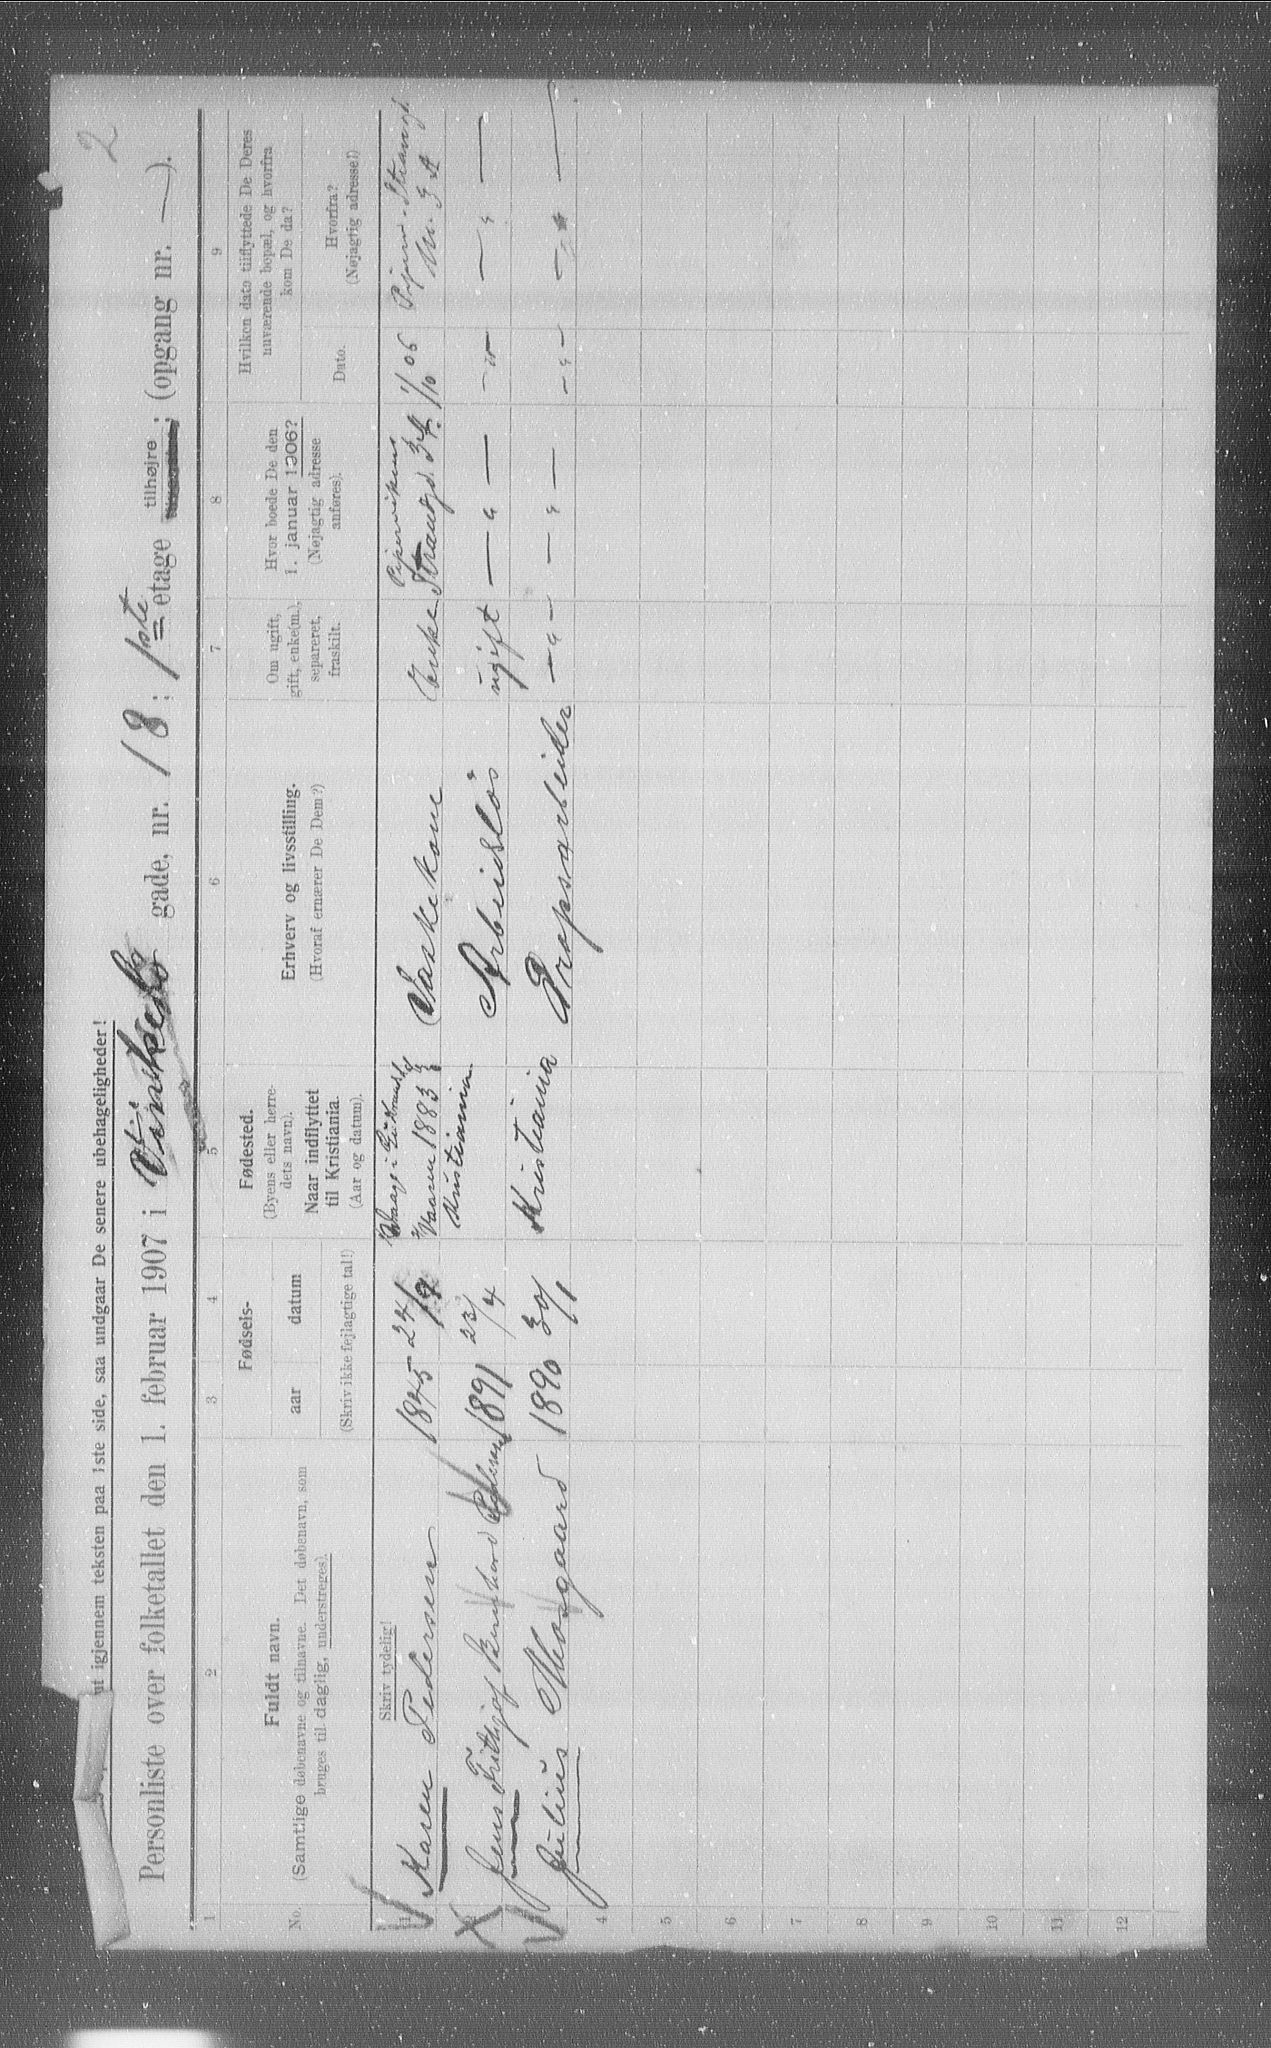 2
ut igjennem teksten paa 1ste side, saa undgaar De senere ubehageligheder!
Personliste over folketallet den 1. februar 1907 i gade, nr. 18; 1ste etage tilhøjre; (opgang nr. —).
1 2 3 4 5 6 7 8 9
No.
Fuldt navn.
(Samtlige døbenavne og tilnavne. Det døbenavn, som
bruges til daglig, understreges).
Fødsels-
aar datum
(Skriv ikke fejlagtige tal!)
Fødested.
(Byens eller herre-
dets navn).
Naar indflyttet
til Kristiania.
(Aar og datum).
Erhverv og livsstilling.
(Hvoraf ernærer De Dem?)
Om ugift,
gift, enke(m.),
separeret,
fraskilt.
Hvor boede De den
1. januar 1906?
(Nøjagtig adresse
anføres).
Hvilken dato tilflyttede De Deres
nuværende bopæl, og hvorfra
kom De da?
Dato.
Hvorfra?
(Nøjagtig adresse!)
Skriv tydelig!
1 Karen Pedersen 1845 24/ Vaaren 1883 Vaskekone Enke Pipervikens Strandgd. 1/10 06 Piperv. Strandgd. Nr. 3 A
2 Jens Frithjof Bernhard Pedersen 1891 23/4 Kristiania Arbeidsløs ugift — " — — " — — " —
3 Julius Mosgaard 1890 30/1 Kristiania Propsarbeider — " — — " — — " — — " —
4
5
6
7
8
9
10
11
12